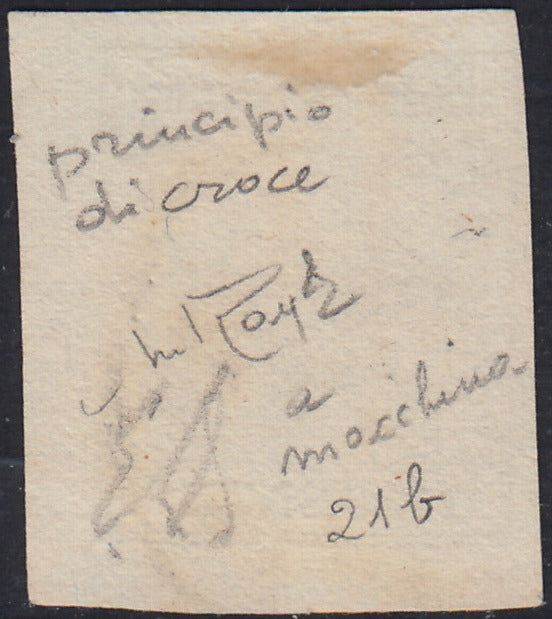 principio
di croce
a
macchina
21b